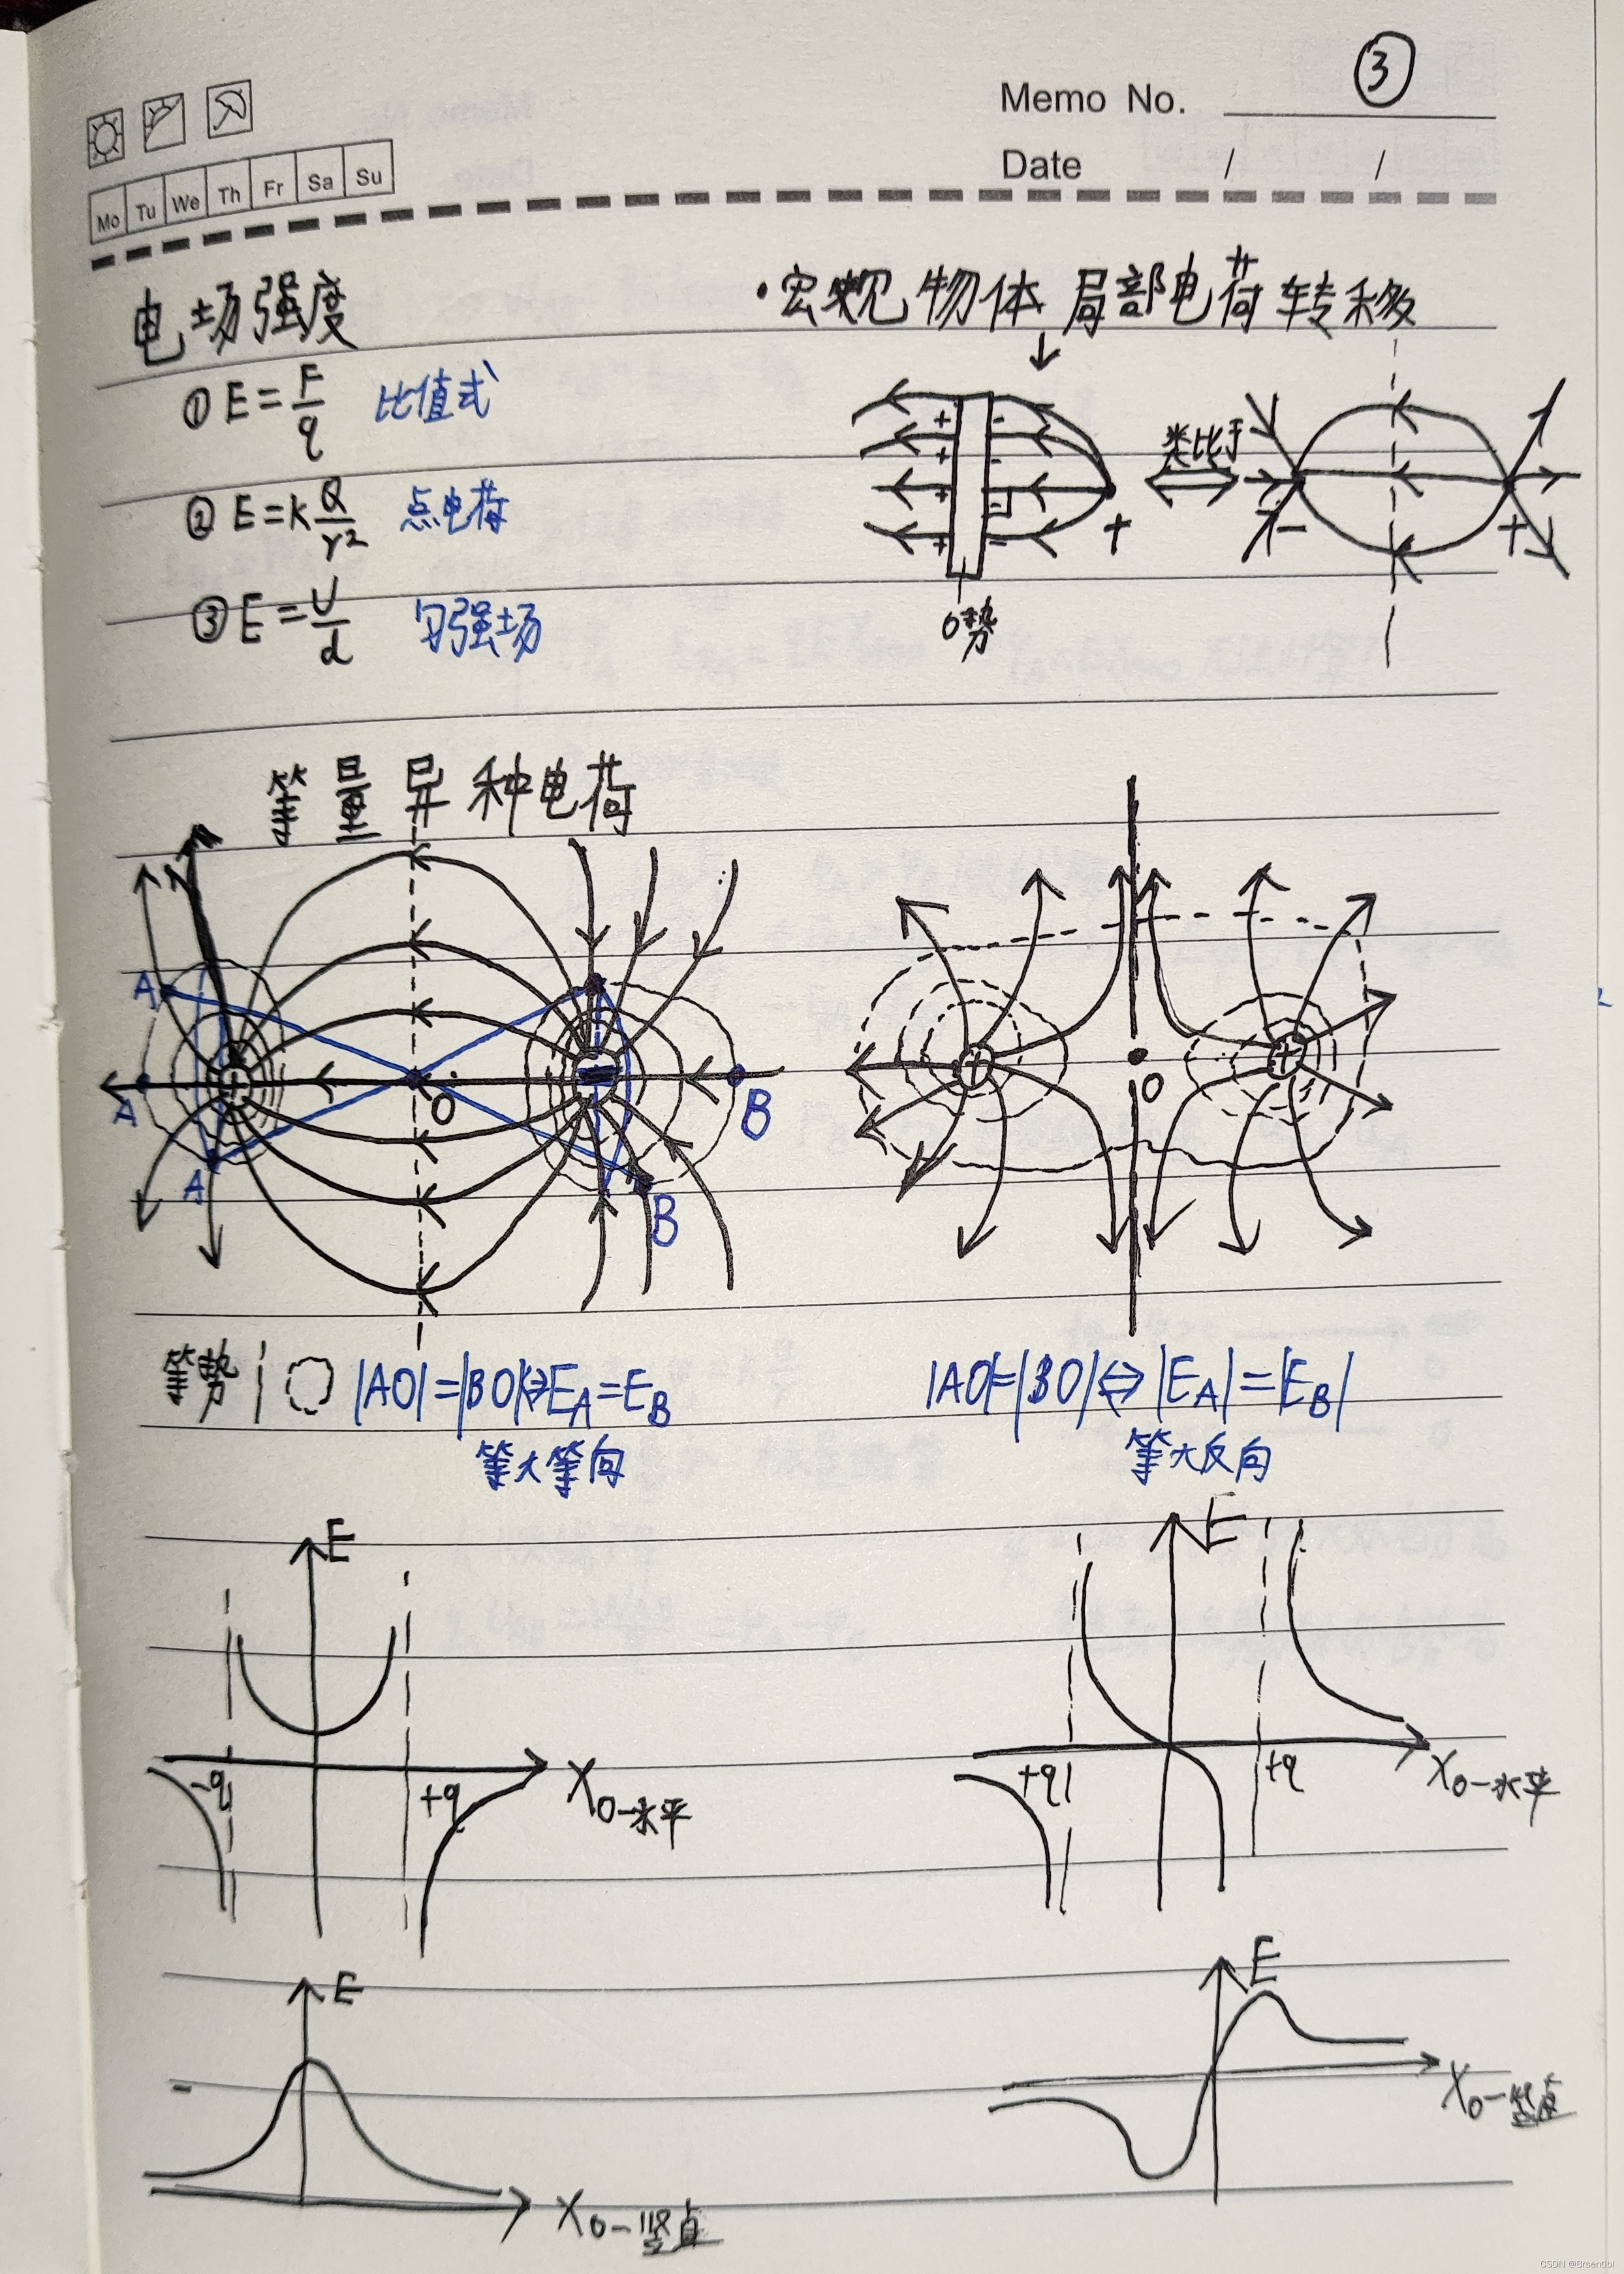 ③
Memo No.
Date / /
Mo Tu We Th Fr Sa Su
电场强度
① E=F/q 比值式
② E=kQ/r² 点电荷
③ E=U/d 匀强场
·宏观物体局部电荷转移
↓
+ + + +
- - -
+
类比于
- +
0势
等量异种电荷
A
A
A
+
O
B
B
+ +
O
等势
|AO|=|BO|⇔E_A=E_B
等大等向
|AO|=|BO|⇔|E_A|=|E_B|
等大反向
E
-q +q X₀₋水平
E
+q +q X₀₋水平
E
X₀₋竖直
E
X₀₋竖直
CSDN @Brsentibi